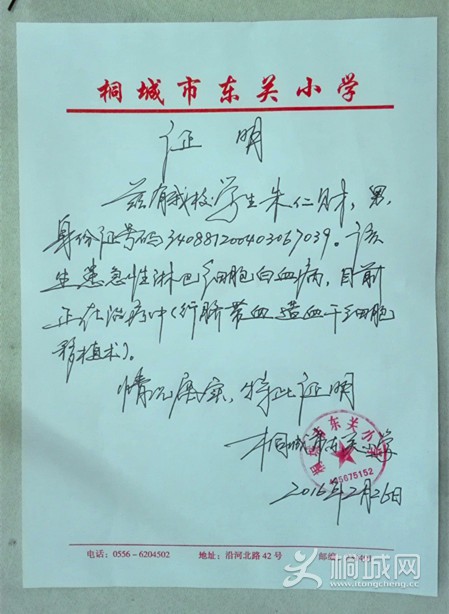 桐城市东关小学
证明
兹有我校学生朱仁财，男，
身份证号码340881200403067039。该
生患急性淋巴细胞白血病，目前
正在治疗中（行脐带血造血干细胞
移植术）。
情况属实，特此证明
桐城市东关小学
2016年2月26日
电话：0556－6204502 地址：沿河北路42号 邮编：
桐城网
www.itongcheng.cc